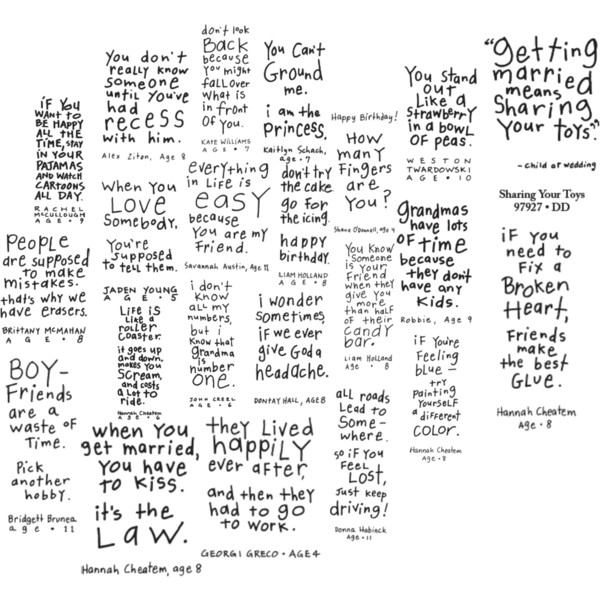 iF You
WANT TO
BE HAPPY
ALL THE
TIME, STAY
IN YOUR
PAJAMAS
AND WATCH
CARTOONS
ALL DAY.
RACHEL
McCULLOUGH
AGE • 9
PEOPLE
are supposed
to make
mistakes.
that's why we
have erasers.
BRITTANY McMAHAN
AGE • 8
BOY-
Friends
are a
waste of
Time.
Pick
another
hobby.
Bridgett Brunea
age • 11
You don't
really know
someone
until You've
had
recess
with him.
Alex Ziton, Age 8
When You
LOVE
Somebody,
You're
supposed
to tell them.
JADEN YOUNG
AGE • 5
LiFE is
Like a
roller
coaster.
it goes up
and down,
makes you
scream,
and costs
a lot to
ride.
Hannah Cheatem
AGE • 6
when You
get married,
You have
to kiss.
it's the
Law.
Hannah Cheatem, age 8
don't look
Back
because
You might
fall over
what is
in front
of You.
KATE WILLIAMS
AGE • 7
everything
in LiFe is
easy
because
You are my
Friend.
Savannah Austin, Age 11
i don't
know
all my
numbers,
but i
know that
grandma
is
number
one.
JOHN CREEL
AGE • 6
they Lived
happily
ever after,
and then they
had to go
to work.
GEORGI GRECO • AGE 4
You Can't
Ground
me.
i am the
Princess.
Kaitlyn Schach,
age • 7
don't try
the cake.
go for
the icing.
happy
birthday.
LIAM HOLLAND
AGE • 8
i wonder
sometimes
if we ever
give God a
headache.
DONTAY HALL, AGE 8
Happy Birthday!
How
many
Fingers
are
You?
Shane O'Donnell, age 4
You Know
Someone
is Your
Friend
when they
give You
more
than half
of their
candy
bar.
Liam Holland
Age • 8
all roads
Lead to
Some-
where.
so if You
Feel
Lost,
Just keep
driving!
Donna Habinck
Age • 11
You Stand
out
Like a
Strawberry
in a bowl
of peas.
WESTON
TWARDOWSKI
AGE • 10
grandmas
have lots
of time
because
they don't
have any
kids.
Robbie, Age 9
iF You're
Feeling
blue —
try
Painting
Yourself
a different
color.
Hannah Cheatem
Age • 8
"getting
married
means
Sharing
Your toys."
- child at wedding
Sharing Your Toys
97927 • DD
iF You
need to
Fix a
Broken
Heart,
Friends
make
the best
Glue.
Hannah Cheatem
Age • 8